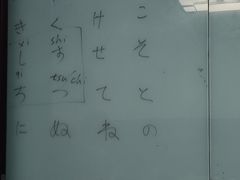 き く け こ
xi shi
し す せ そ
qi tsu chi
ち つ て と
に ぬ ね の